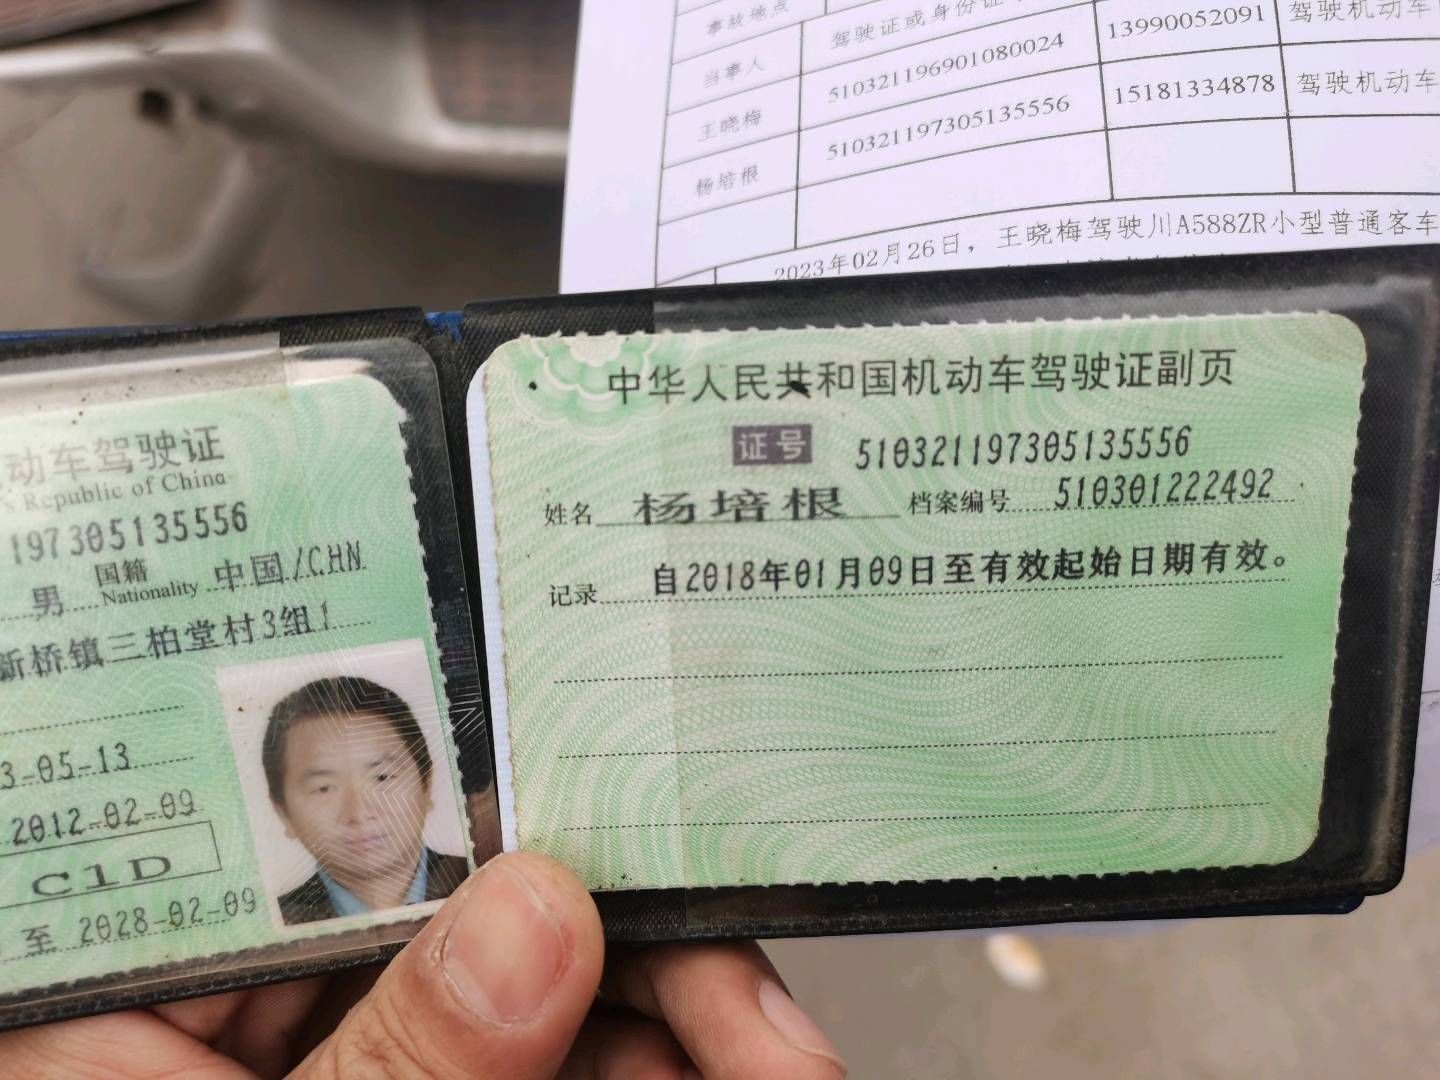 事故地点
当事人
驾驶证或身份证
王晓梅
510321196901080024
13990052091
驾驶机动车
杨培根
510321197305135556
15181334878
驾驶机动车
2023年02月26日，王晓梅驾驶川A588ZR小型普通客车
动车驾驶证
's Republic of China
197305135556
男 国籍 Nationality 中国/CHN
新桥镇三柏堂村3组1
3-05-13
2012-02-09
C1D
至 2028-02-09
中华人民共和国机动车驾驶证副页
证号 510321197305135556
姓名 杨培根 档案编号 510301222492
记录 自2018年01月09日至有效起始日期有效。